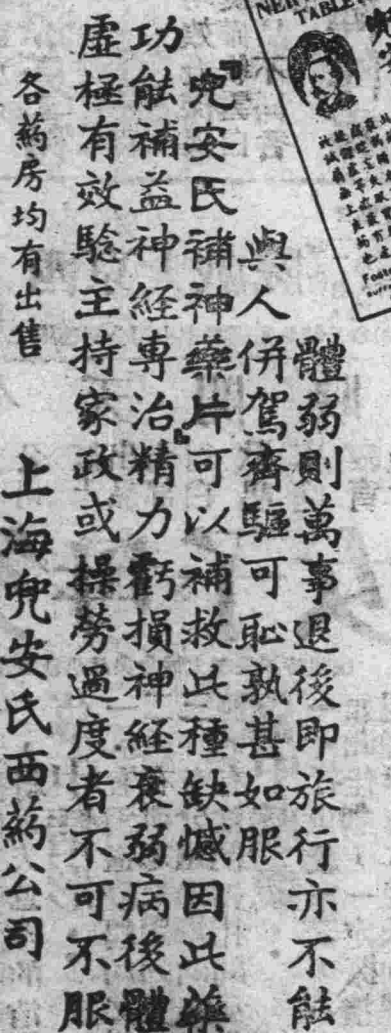 體弱則萬事退後即旅行亦不能
與人併駕齊驅可恥孰甚如服
『兜安氏補神藥片』可以補救此種缺憾因此藥
功能補益神経專治精力虧損神経衰弱病後體
虛極有效驗主持家政或操勞過度者不可不服
各葯房均有出售
上海兜安氏西葯公司
TABLE